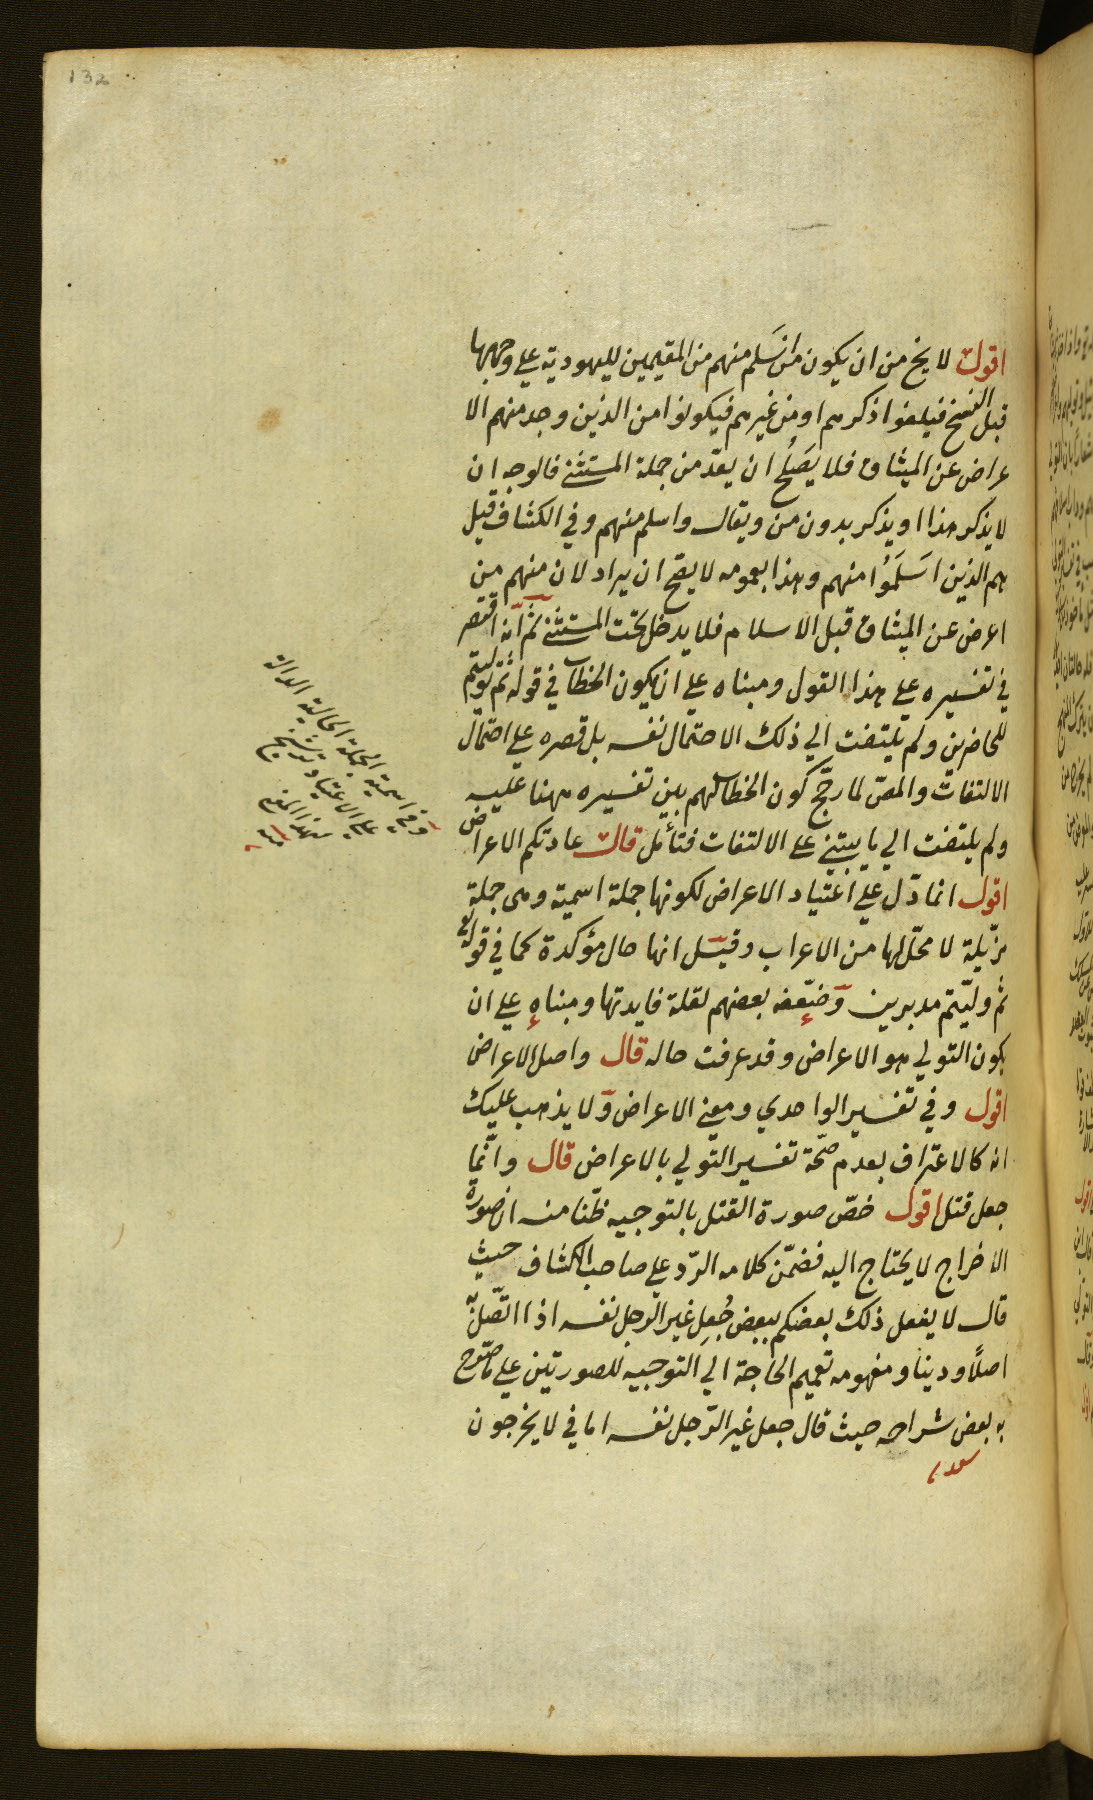 132
اقول لا يخ من ان يكون من اسلم منهم من المقيمين لليهودية على وجهها
قبل النسخ فيلغوا ذكرهم او من غيرهم فيكونوا من الذين وجد منهم الا
عراض عن الميثاق فلا يصلح ان يعد من جملة المستثنى فالوجه ان
لا يذكر هذا او يذكر بدون من ويقال واسلم منهم وفي الكشاف قيل
هم الذين اسلموا منهم وهذا بعمومه لا يصح ان يراد لان منهم من
اعرض عن الميثاق قبل الاسلام فلا يدخل تحت المستثنى ثم انه اقتصر
في تفسيره على هذا القول ومبناه على ان يكون الخطاب في قوله ثم توليتم
للحاضرين ولم يلتفت الى ذلك الاحتمال نفسه بل قصره على احتمال
الالتفات والمص لما رجح كون الخطاب لهم بين تفسيره ههنا عليه
ولم يلتفت الى ما يبتنى على الالتفات فتأمل قال عادتكم الاعراض
اقول انما دل على اعتياد الاعراض لكونها جملة اسمية وهى جملة
مذيلة لا محل لها من الاعراب وقيل انها حال مؤكدة كما في قوله
ثم وليتم مدبرين وضعفه بعضهم لقلة فايدتها ومبناه على ان
يكون التولي هو الاعراض وقد عرفت حاله قال واصل الاعراض
اقول وفي تفسير الواحدي ومعنى الاعراض ولا يذهب عليك
انه كالاعتراف بعدم صحة تفسير التولي بالاعراض قال وانما
جعل قتل اقول خص صورة القتل بالتوجيه ظنا منه ان صورة
الاخراج لا يحتاج اليه فضمن كلامه الرد على صاحب الكشاف حيث
قال لا يفعل ذلك بعضكم ببعض جعل غير الرجل نفسه اذا اتصل به
اصلا ودينا ومفهومه تعميم الحاجة الى التوجيه للصورتين على ما صرح
به بعض شراحه حيث قال جعل غير الرجل نفسه اما في لا يخرجون
وفي اسمية الجملة الحالية الدالة
على الاعتياد